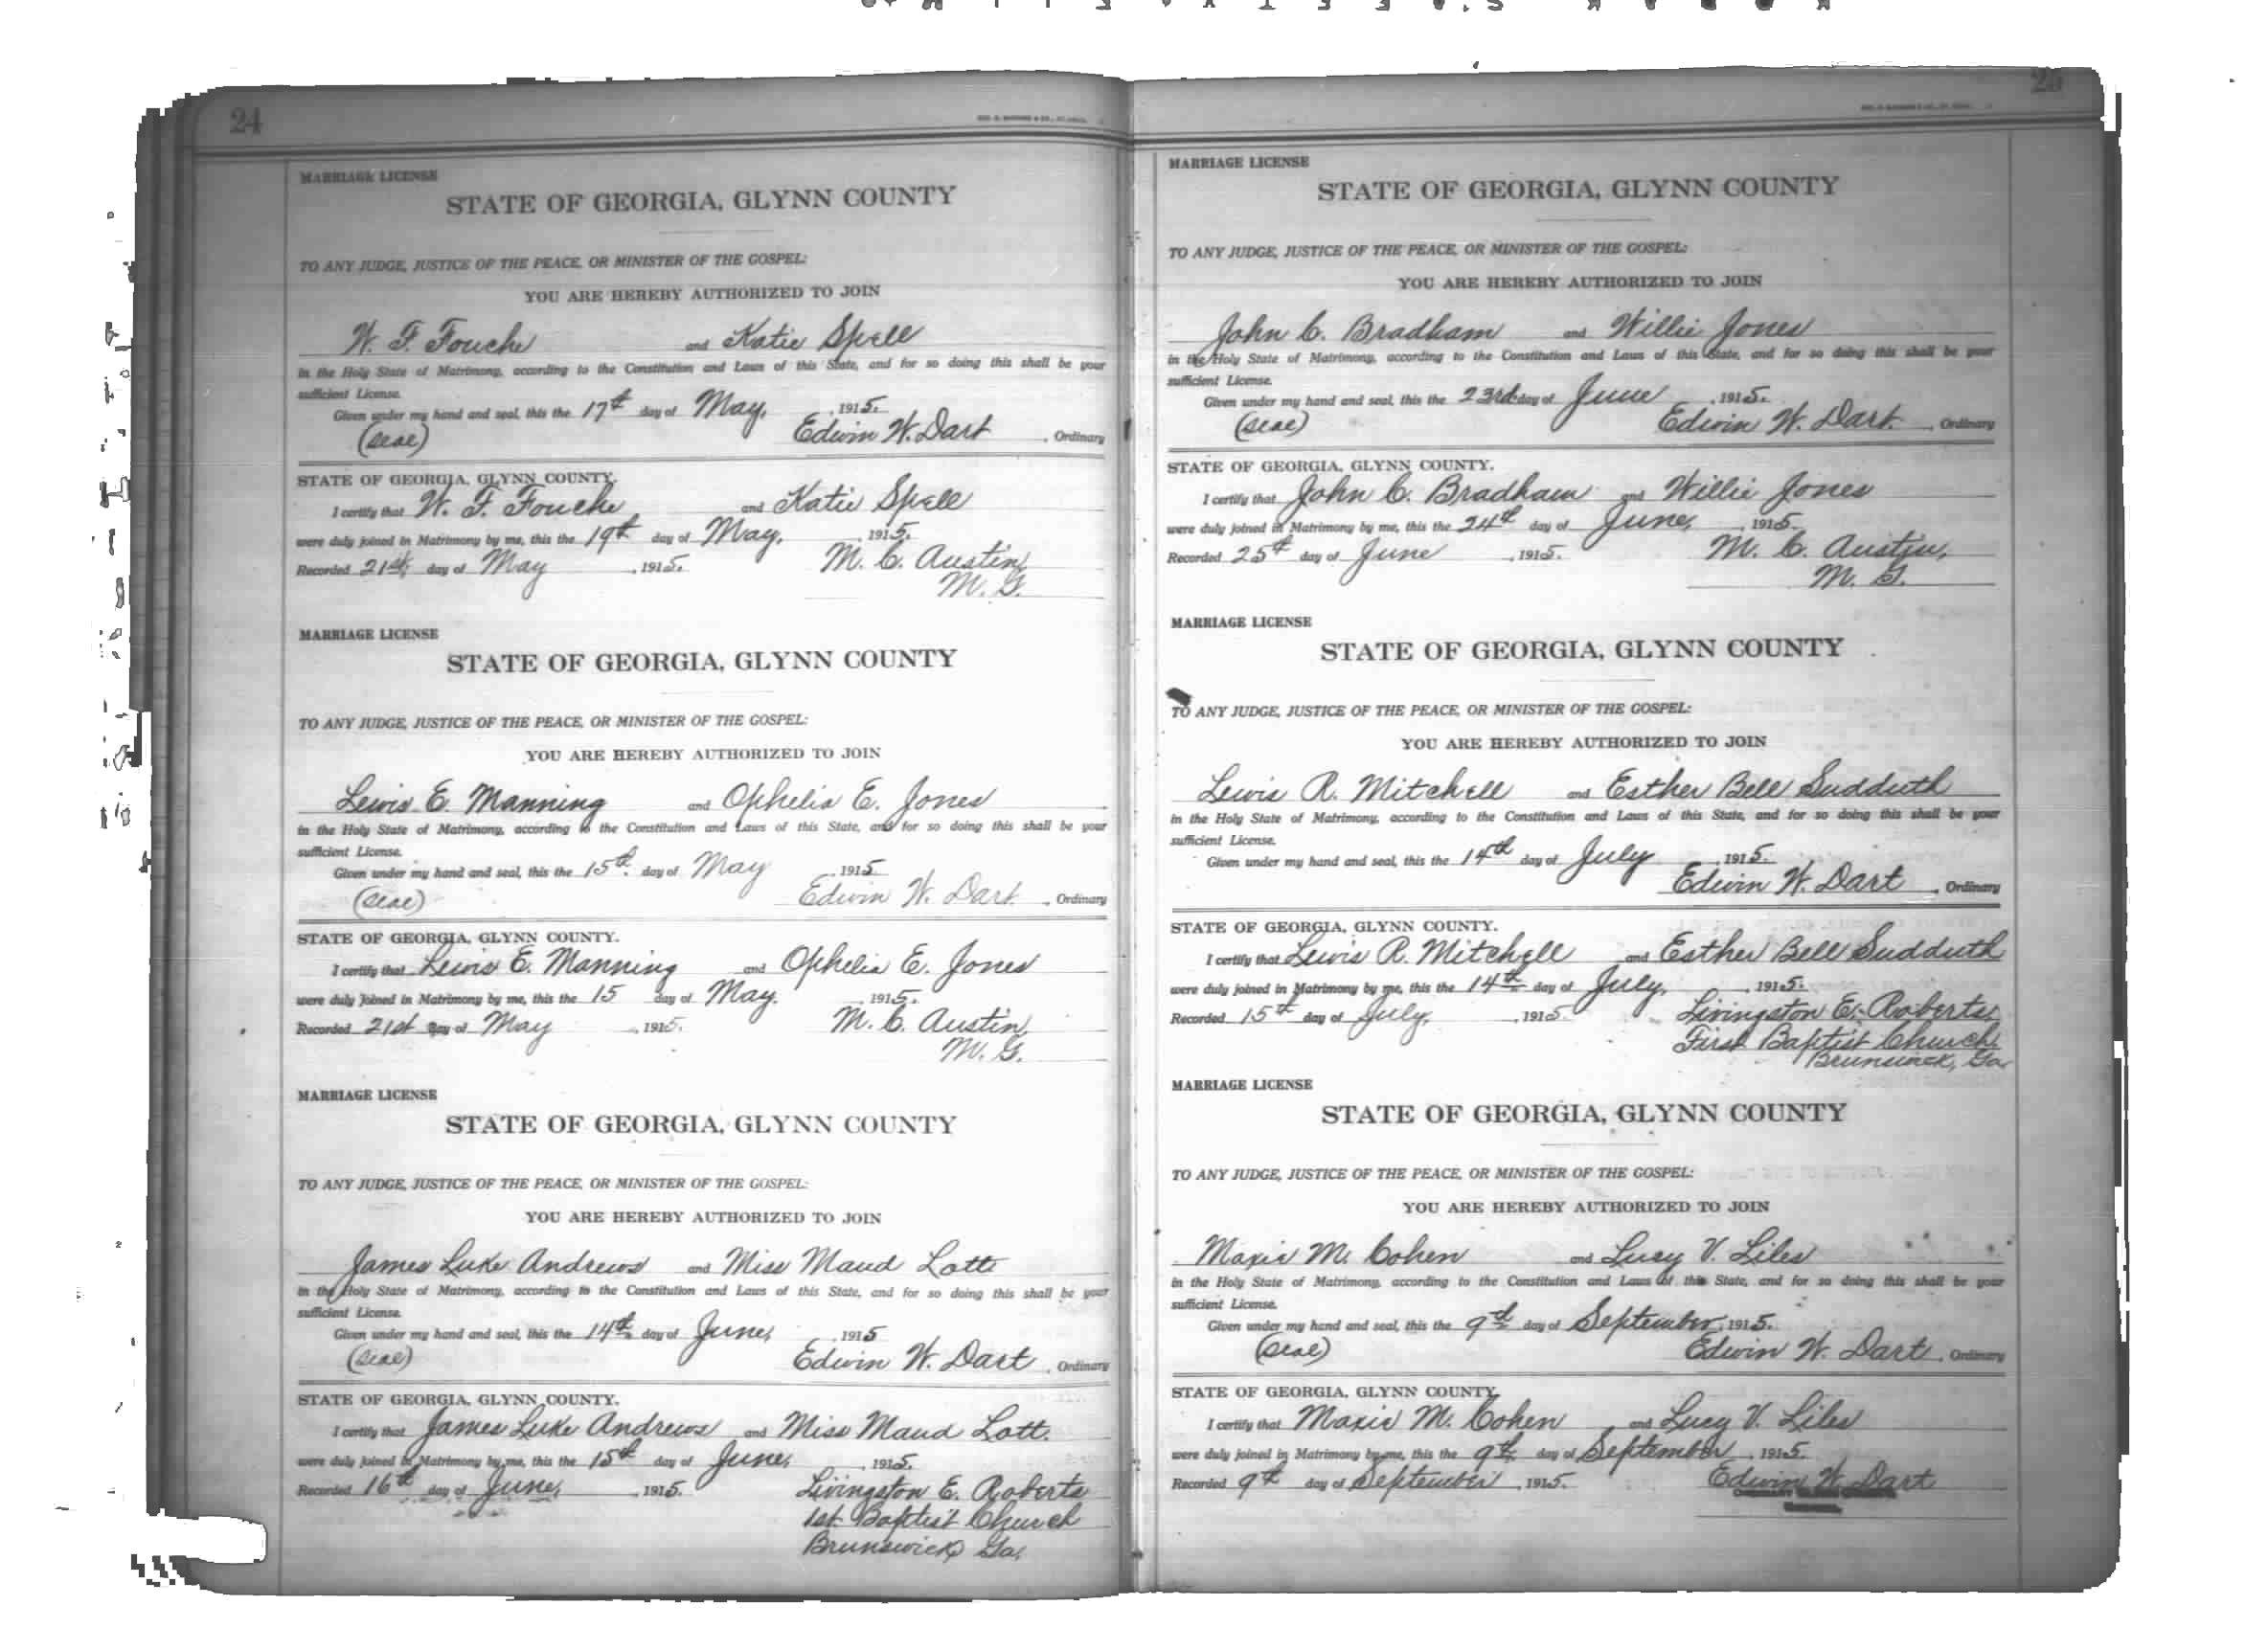 24
MARRIAGE LICENSE
STATE OF GEORGIA, GLYNN COUNTY
TO ANY JUDGE, JUSTICE OF THE PEACE, OR MINISTER OF THE GOSPEL:
YOU ARE HEREBY AUTHORIZED TO JOIN
W. F. Fouche and Katie Spell
in the Holy State of Matrimony, according to the Constitution and Laws of this State, and for so doing this shall be your
sufficient License.
Given under my hand and seal, this the 17th day of May, 1915.
(Seal) Edwin W. Dart, Ordinary
STATE OF GEORGIA, GLYNN COUNTY.
I certify that W. F. Fouche and Katie Spell
were duly joined in Matrimony by me, this the 19th day of May, 1915.
Recorded 21st day of May, 1915. M. C. Austin,
M. G.
MARRIAGE LICENSE
STATE OF GEORGIA, GLYNN COUNTY
TO ANY JUDGE, JUSTICE OF THE PEACE, OR MINISTER OF THE GOSPEL:
YOU ARE HEREBY AUTHORIZED TO JOIN
Lewis E. Manning and Ophelia E. Jones
in the Holy State of Matrimony, according to the Constitution and Laws of this State, and for so doing this shall be your
sufficient License.
Given under my hand and seal, this the 15th. day of May, 1915
(Seal) Edwin W. Dart, Ordinary
STATE OF GEORGIA, GLYNN COUNTY.
I certify that Lewis E. Manning and Ophelia E. Jones
were duly joined in Matrimony by me, this the 15 day of May, 1915.
Recorded 21st day of May, 1915. M. C. Austin,
M. G.
MARRIAGE LICENSE
STATE OF GEORGIA, GLYNN COUNTY
TO ANY JUDGE, JUSTICE OF THE PEACE, OR MINISTER OF THE GOSPEL:
YOU ARE HEREBY AUTHORIZED TO JOIN
James Luke Andrews and Miss Maud Lott
in the Holy State of Matrimony, according to the Constitution and Laws of this State, and for so doing this shall be your
sufficient License.
Given under my hand and seal, this the 14th day of June, 1915
(Seal) Edwin W. Dart, Ordinary
STATE OF GEORGIA, GLYNN COUNTY.
I certify that James Luke Andrews and Miss Maud Lott.
were duly joined in Matrimony by me, this the 15th day of June, 1915.
Recorded 16th day of June, 1915. Livingston E. Roberts
1st. Baptist Church
Brunswick, Ga.
25
MARRIAGE LICENSE
STATE OF GEORGIA, GLYNN COUNTY
TO ANY JUDGE, JUSTICE OF THE PEACE, OR MINISTER OF THE GOSPEL:
YOU ARE HEREBY AUTHORIZED TO JOIN
John C. Bradham and Willie Jones
in the Holy State of Matrimony, according to the Constitution and Laws of this State, and for so doing this shall be your
sufficient License.
Given under my hand and seal, this the 23rd. day of June, 1915.
(Seal) Edwin W. Dart, Ordinary
STATE OF GEORGIA, GLYNN COUNTY.
I certify that John C. Bradham and Willie Jones
were duly joined in Matrimony by me, this the 24th day of June, 1915.
Recorded 25th day of June, 1915. M. C. Austin,
M. G.
MARRIAGE LICENSE
STATE OF GEORGIA, GLYNN COUNTY
TO ANY JUDGE, JUSTICE OF THE PEACE, OR MINISTER OF THE GOSPEL:
YOU ARE HEREBY AUTHORIZED TO JOIN
Lewis R. Mitchell and Esther Bell Sudduth
in the Holy State of Matrimony, according to the Constitution and Laws of this State, and for so doing this shall be your
sufficient License.
Given under my hand and seal, this the 14th day of July, 1915.
Edwin W. Dart, Ordinary
STATE OF GEORGIA, GLYNN COUNTY.
I certify that Lewis R. Mitchell and Esther Bell Sudduth
were duly joined in Matrimony by me, this the 14th day of July, 1915.
Recorded 15th day of July, 1915. Livingston E. Roberts,
First Baptist Church,
Brunswick, Ga.
MARRIAGE LICENSE
STATE OF GEORGIA, GLYNN COUNTY
TO ANY JUDGE, JUSTICE OF THE PEACE, OR MINISTER OF THE GOSPEL:
YOU ARE HEREBY AUTHORIZED TO JOIN
Maxie M. Cohen and Lucy V. Liles
in the Holy State of Matrimony, according to the Constitution and Laws of this State, and for so doing this shall be your
sufficient License.
Given under my hand and seal, this the 9th day of September, 1915.
(Seal) Edwin W. Dart, Ordinary
STATE OF GEORGIA, GLYNN COUNTY.
I certify that Maxie M. Cohen and Lucy V. Liles
were duly joined in Matrimony by me, this the 9th day of September, 1915.
Recorded 9th day of September, 1915. Edwin W. Dart